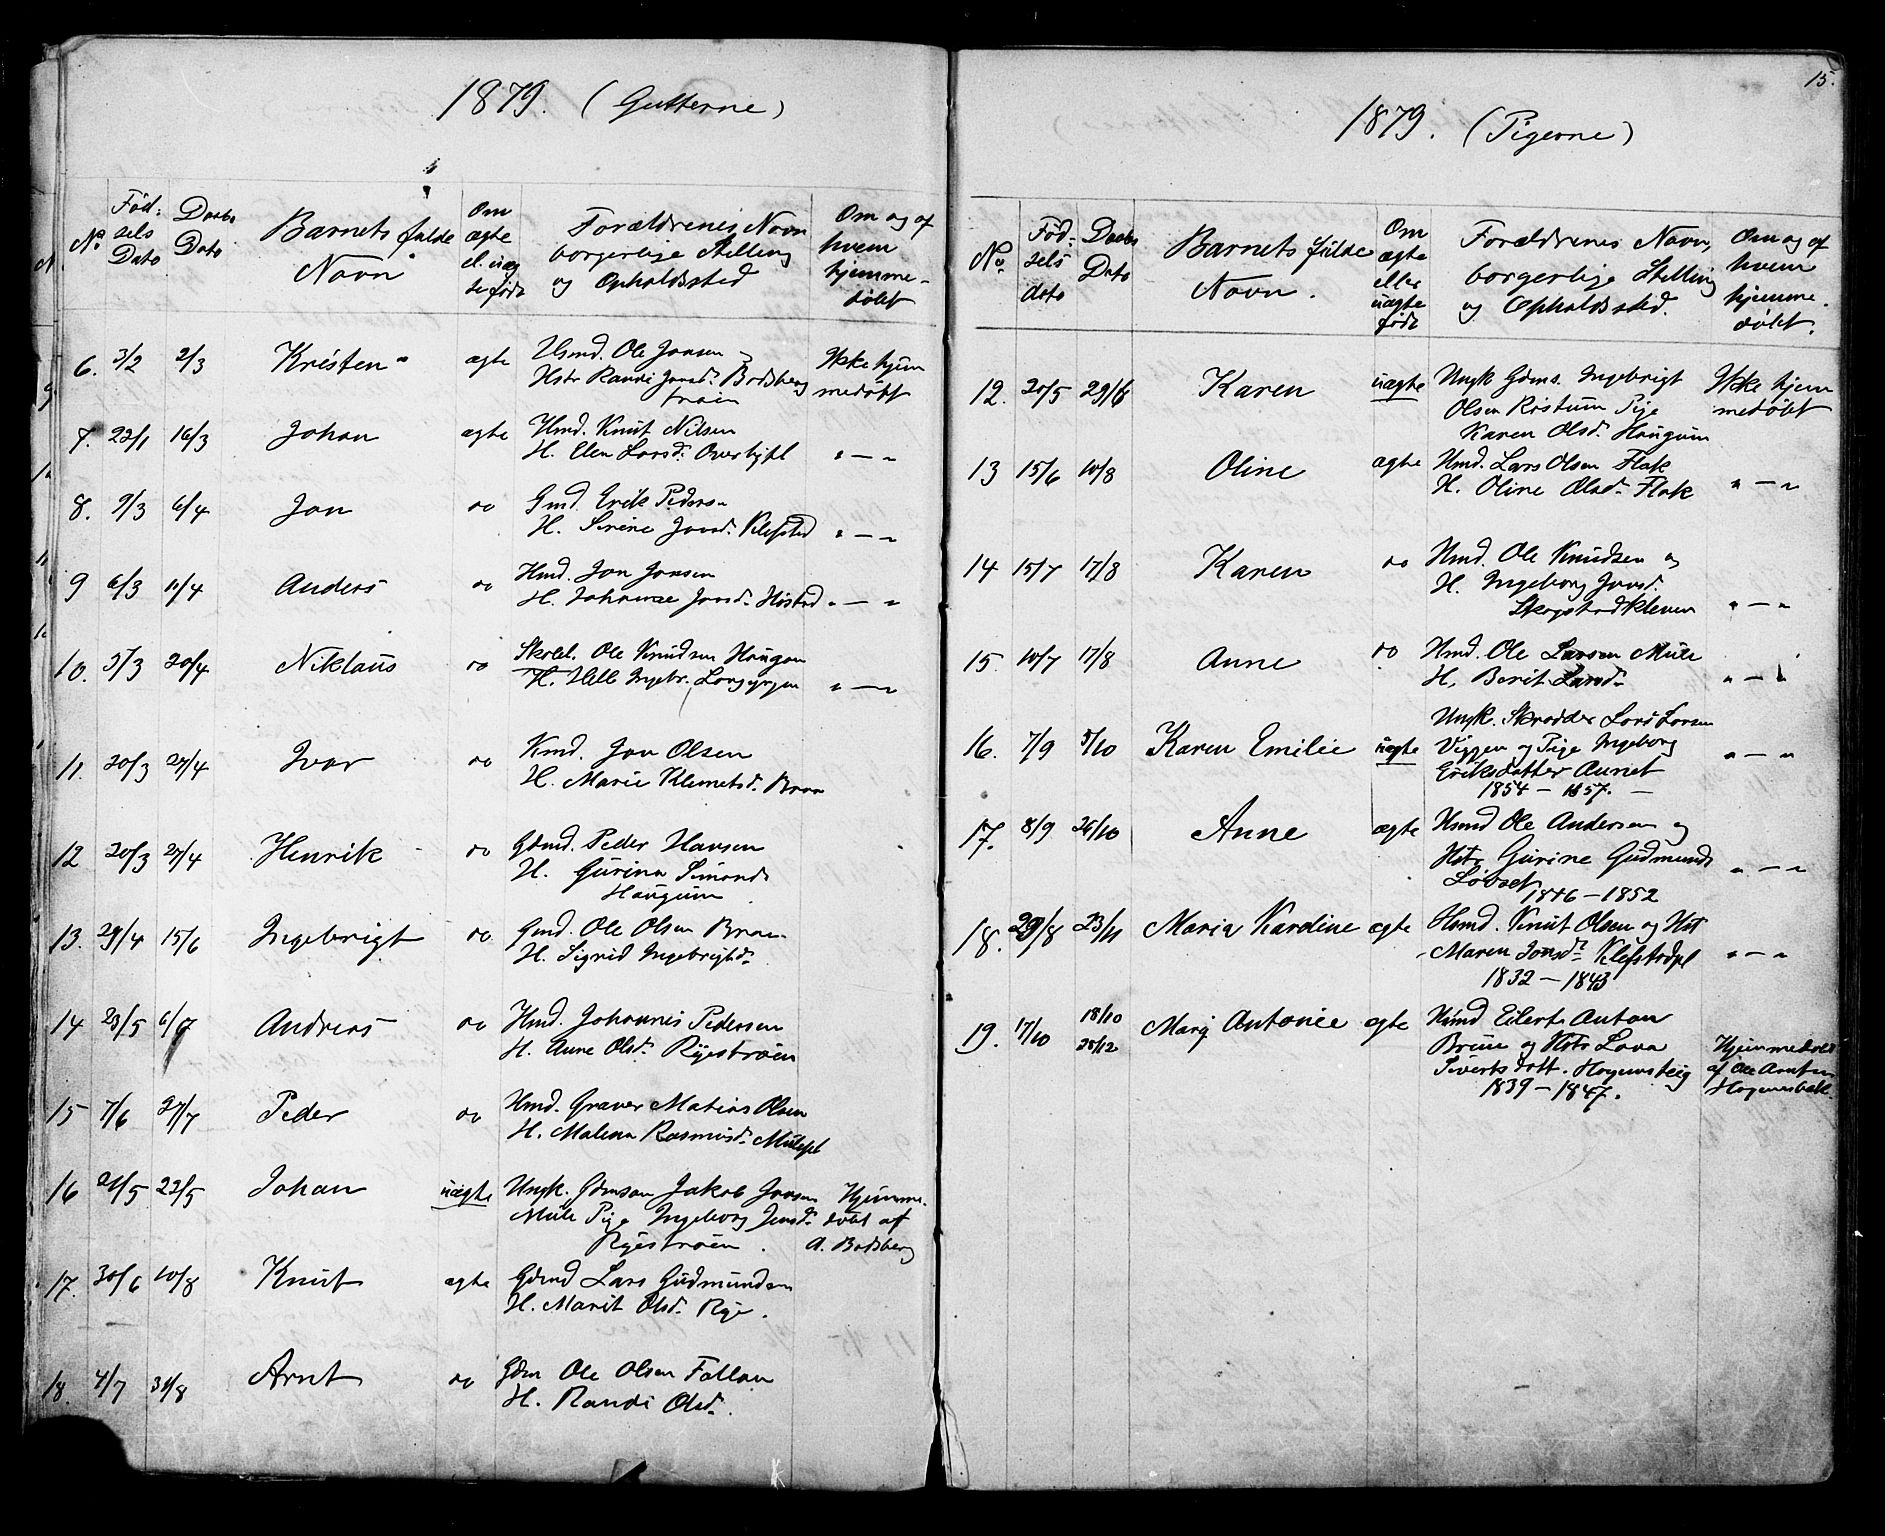 1879. (Gutterne)
No. Fødsels Dato Daabs Dato Barnets fulde Navn Om ægte el. uægte født Forældrenes Navn borgerlige Stilling og Opholdssted Om og af hvem hjemmedøbt
6. 3/2 2/3 Kristen ægte Husmd. Ole Jonsen og Ikke hjem
Hstr Randi Jonsd. Bodsberg medøbt
7. 22/1 16/3 Johan ægte Hmd. Knut Nilsen
H. Elen Larsd. " — "
8. 9/3 6/4 Jon do Gmd. Erik Peders
H. Serine Jonsd. Klefstad " — "
9 6/3 11/4 Anders do Hmd. Jon Jonsen
H. Johanne Jonsd. Høstad " — "
10. 5/3 20/4 Niklaus do Skolel. Ole Knudsen Haugan
H. Ingebr. " — "
11. 20/3 27/4 Ivar do Jon Olsen
H. Marie Klemetsd. Braa
12 20/3 27/4 Henrik do Gdmd. Peder Hansen
H. Gurina Simonds
Haugum
13. 29/4 15/6 Ingebrigt do Gmd. Ole Olsen Braa
H. Sigrid Ingebrigtsd.
14 23/5 6/7 Andreas do Hmd. Johannes Pedersen
H. Anne Olsd. Ryestrøen
15 7/6 27/7 Peder do Hmd. Graver Matias Olsen
H. Malena Rasmusd. Mulepl
16 21/5 22/5 Johan uægte Ungk. Gdmsøn Jakob Jonsen Hjemme-
Mule Pige Ingeborg Jensd. døbt af
Ryestrøen. A. Bodsberg
17. 30/6 10/8 Knut ægte Gdmd Lars Gudmundsen
H. Marit Olsd. Rye.
18. 4/7 31/8 Arnt do Gdm Ole Olsen Fallan
H. Randi Olsd.
15.
1879. (Pigerne)
No. Fødsels dato Daabs Dato Barnets fulde Navn. Om ægte eller uægte født Forældrenes Navn, borgerlige Stilling og Opholdssted. Om og af hvem hjemmedøbt.
12. 20/5 29/6 Karen uægte Ungk Gdms. Ingebrigt Ikke hjem
Olsen Røstum Pige medøbt
Karen Olsd. Haugum
13 15/6 10/8 Oline ægte Hmd. Lars Olsen Flak
H. Oline Olsd. Flak " — "
14 15/7 17/8 Karen do Hmd. Ole Knudsen og
H. Ingeborg Jonsd.
Skogstadkleven " — "
15. 10/7 17/8 Anne do Hmd. Ole Larsen Mule
H. Berit Larsd. " — "
16. 7/9 5/10 Karen Emilie uægte Ungk. Skrædder Lars Larsen
Viggen og Pige Ingeborg " — "
Eriksdatter Aunet
1854 — 1857. —
17. 8/9 26/10 Anne ægte Hsmd Ole Andersen og
Hstr Gurine Gudmunds
Løvset " — "
1846 — 1852
18. 29/8 23/11 Maria Kardine ægte Hsmd. Knut Olsen og Hst
Maren Jonsd. Klefstadpl " — "
1832 — 1843
19. 17/10 18/10 28/12 Marij Antonie ægte Hsmd Eilert Anton
Bruun og Hstr Lava Hjemmedøbt
Sivertsdatt. Hogensteig af Ole Arntsen
1839 — 1847. Hogensbak